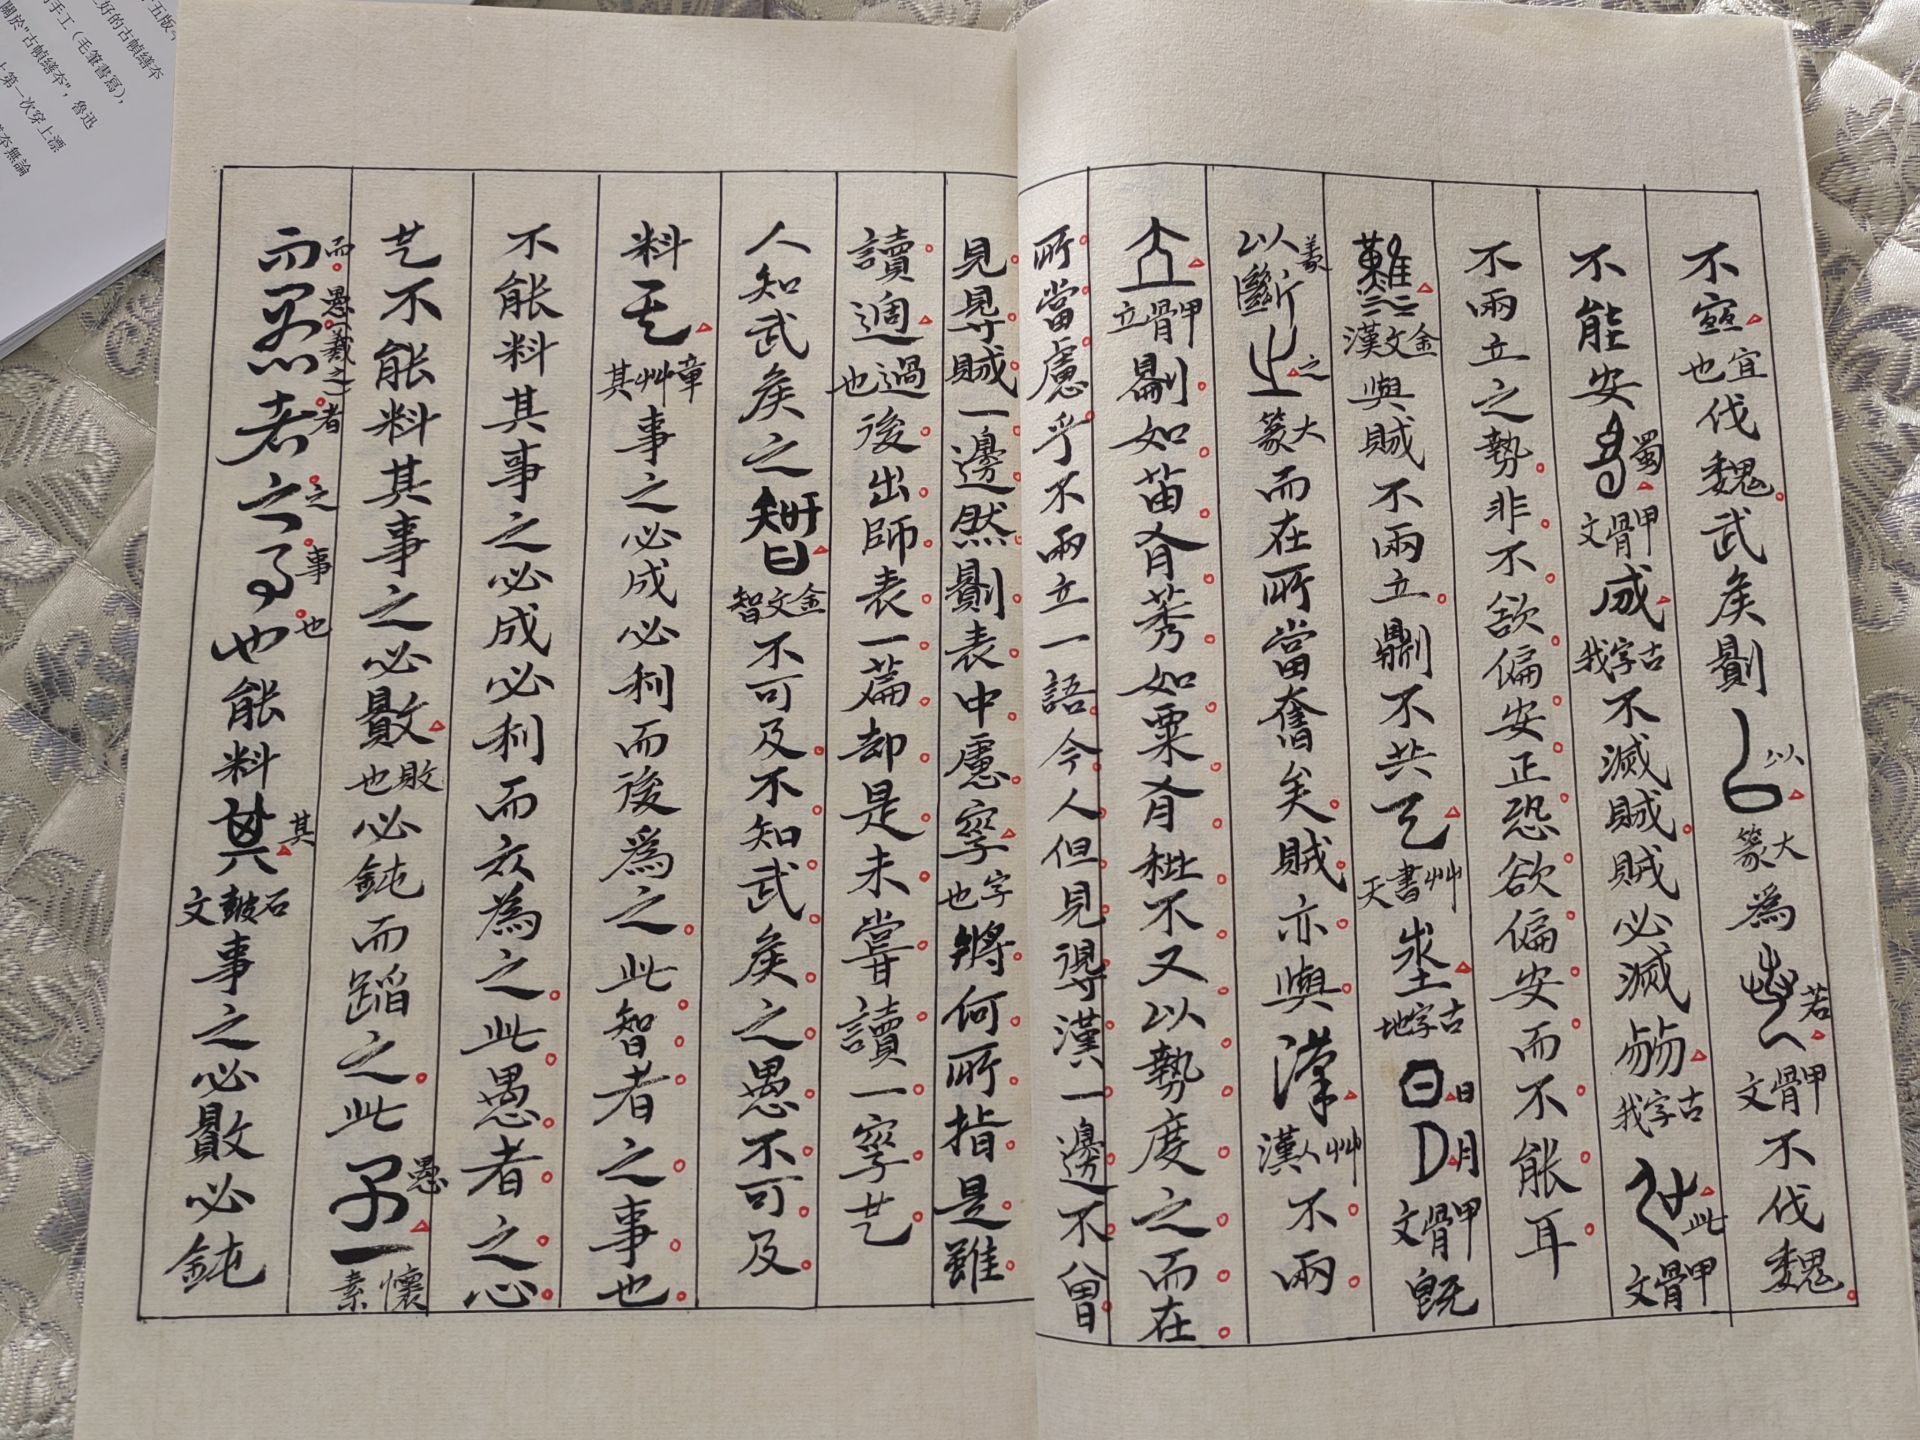 不宜也宜伐魏武矦劓以以大篆為若若甲骨文不伐魏
不能安蜀蜀甲骨文成古字我不滅賊賊必滅古字我此此甲骨文
不兩立之勢非不欲偏安正恐欲偏安而不能耳
難金文漢與賊不兩立鼎不共天艸書天坔古字地日日月月甲骨文既
以斷之之大篆而在所當奮矣賊亦與漢艸人漢不兩
立甲骨立劓如苗有莠如粟有秕不又以勢度之而在
所當慮乎不兩立一語今人但見得漢一邊不曾
見得賊一邊然劓表中慮字也字將何所指是雖
讀過過也後出師表一篇却是未嘗讀一字也
人知武矦之智金文智不可及不知武矦之愚不可及
料其章艸其事之必成必利而後為之此智者之事也
不能料其事之必成必利而亦為之此愚者之心
也不能料其事之必敗敗也必鈍而蹈之此愚愚懷素
而而愚愚羲之者者之之事事也也能料其其石鼓文事之必敗必鈍
五版
好的古幀繕夲
手工（毛筆書寫），
關於"古幀繕夲"，魯迅
第一次穿上漂
夲無論